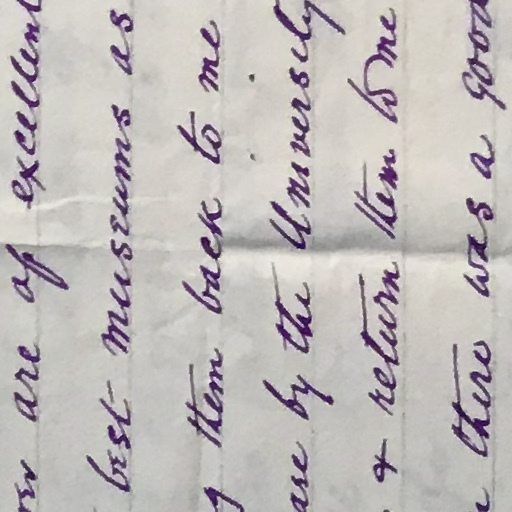 are of excellent
best museums as
them back to me
by the University
& return them to me
there was a good